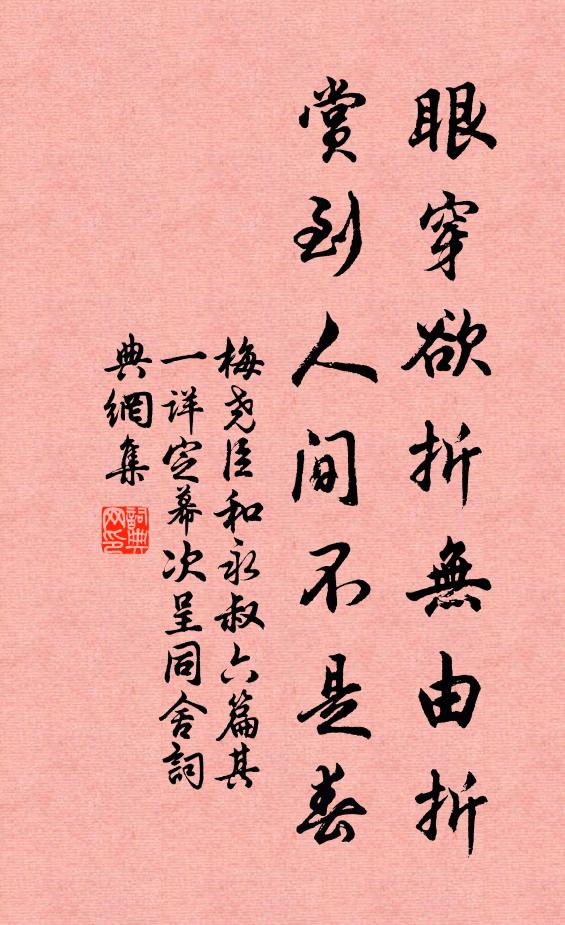 眼穿欲折無由折
賞到人间不是春
梅堯臣和永叔六篇其
一详定幕次呈同舍詞
典網集
詞典
网印